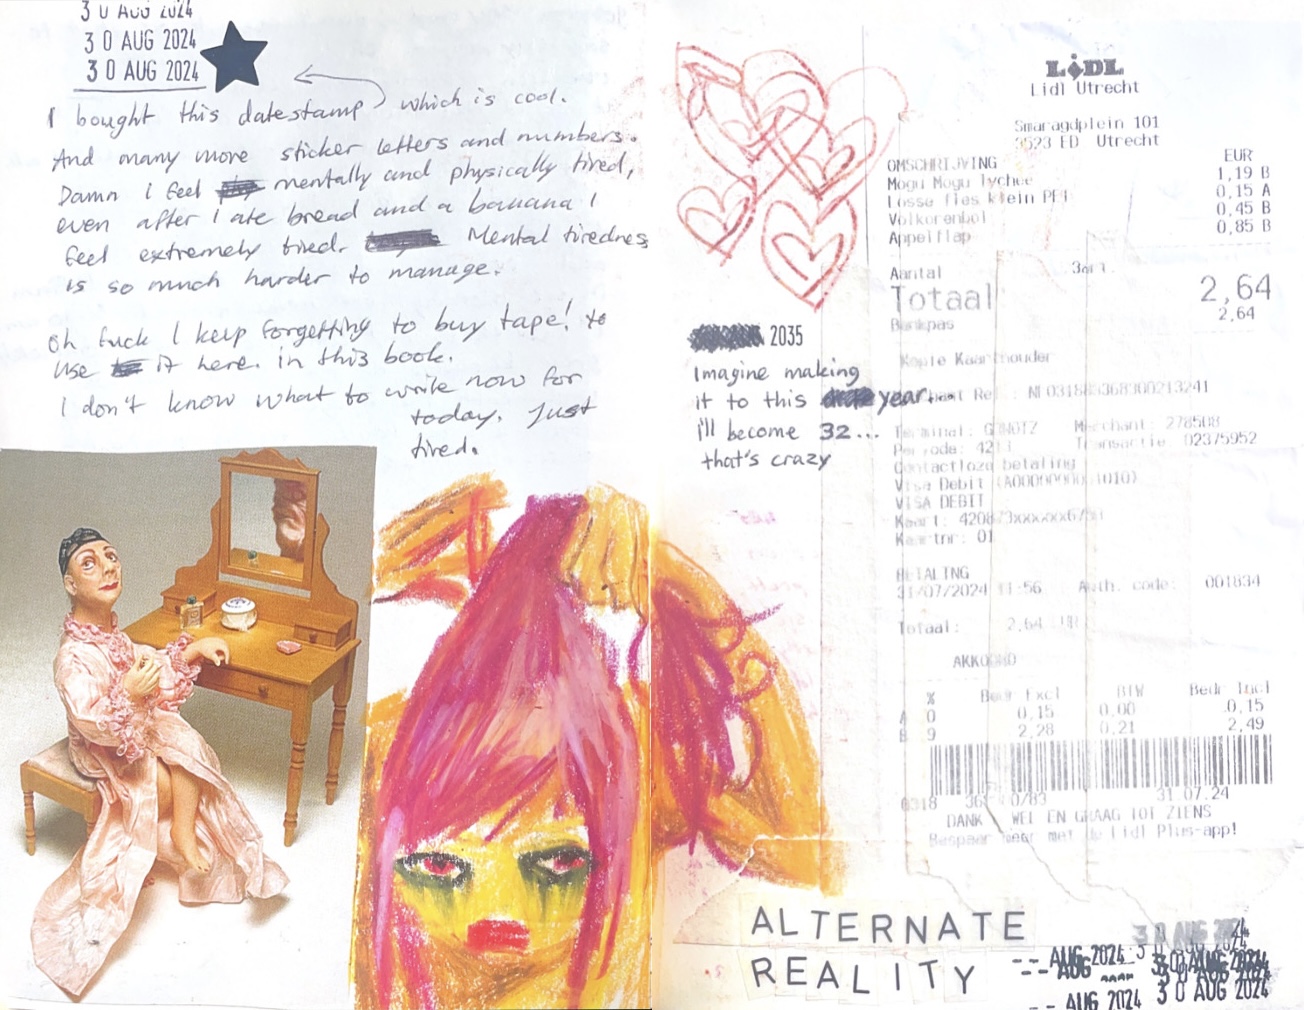 3 0 AUG 2024
3 0 AUG 2024
3 0 AUG 2024
I bought this datestamp which is cool.
And many more sticker letters and numbers.
Damn i feel mentally and physically tired,
even after I ate bread and a banana I
feel extremely tired. Mental tiredness
is so much harder to manage.
Oh fuck I keep forgetting to buy tape! to
use it here. in this book.
I don't know what to write now for
today. Just
tired.
2035
Imagine making
it to this year...
i'll become 32...
that's crazy
LIDL
Lidl Utrecht
Smaragdplein 101
3523 ED Utrecht
OMSCHRIJVING EUR
Mogu Mogu lychee 1,19 B
Losse fles klein PET 0,15 A
Volkorenbol 0,45 B
Appelflap 0,85 B
Aantal
Totaal 2,64
Bankpas 2,64
Kopie Kaarthouder
Terminal: Merchant: 278508
Transactie: 02375952
Contactloze betaling
Visa Debit
VISA DEBIT
Kaart:
Kaartnr: 01
BETALING
31/07/2024 11:56 Auth. code: 001834
Totaal: 2,64 EUR
AKKOORD
% Bedr Excl BTW Bedr Incl
A 0 0,15 0,00 0,15
B 9 2,28 0,21 2,49
0318 31.07.24
DANK WEL EN GRAAG TOT ZIENS
Bespaar meer met de Lidl Plus-app!
ALTERNATE
REALITY
3 0 AUG 2024
AUG 2024
AUG 2024
3 0 AUG 2024